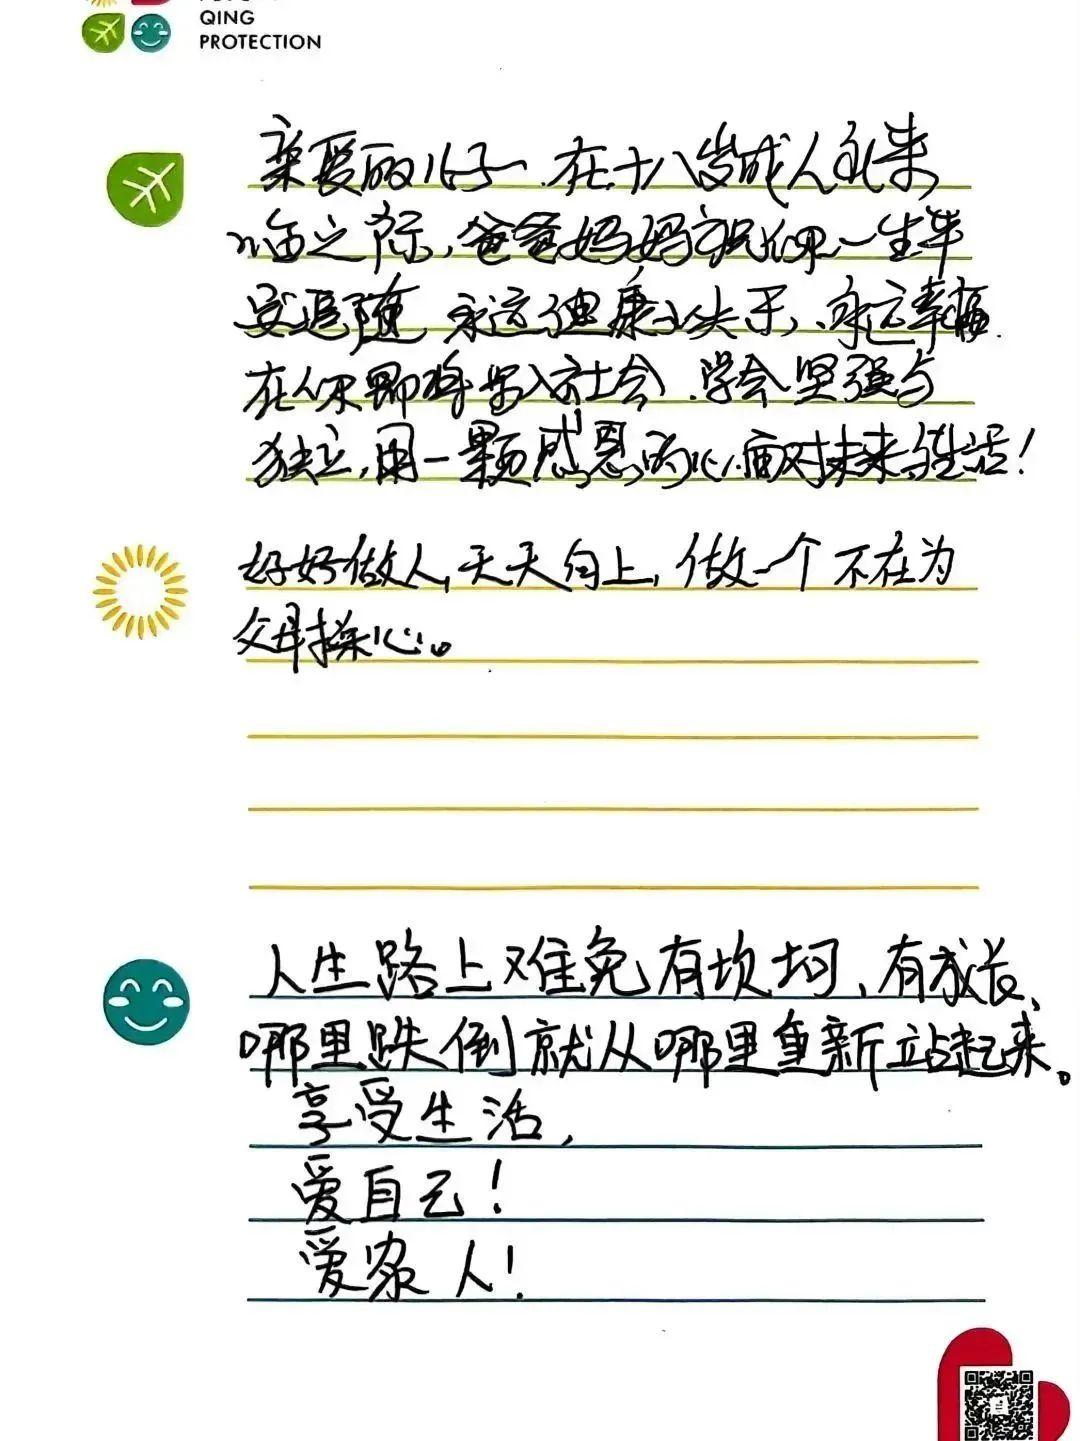 QING
PROTECTION
亲爱的儿子、在十八岁成人礼来
临之际,爸爸妈妈祝你一生平
安追随,永远健康快乐,永远幸福.
在你即将步入社会,学会坚强与
独立,用一颗感恩的心面对未来与生活!
好好做人,天天向上,做一个不在为
父母操心。
人生路上难免有坎坷、有成长、
哪里跌倒就从哪里重新站起来。
享受生活,
爱自己!
爱家人!